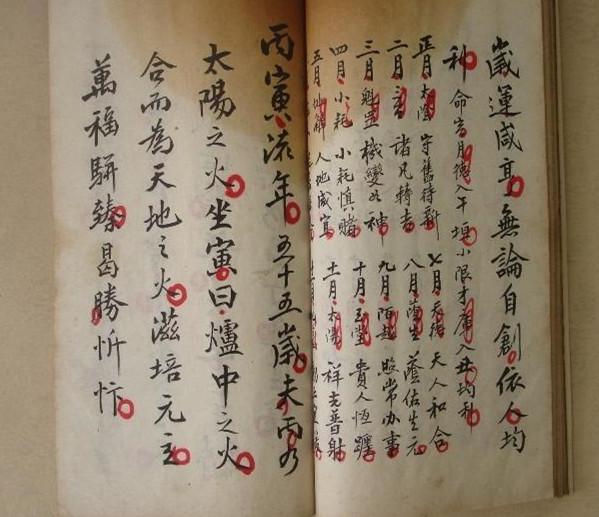 歲運咸亨無論自創依人均
利命宮月德入午垣小限才庫入丑均利
正月太陰守舊待新
七月天德天人和合
二月諸凡轉吉
八月蔭生蔭佑生元
三月魁罡機變如神
九月陌越照常办事
四月小耗小耗慎賭
十月玉堂貴人恆躔
五月人地咸宜
十一月太陽祥光普射
丙寅流年五十五歲夫丙乃
太陽之火坐寅曰爐中之火
合而為天地之火滋培元立
萬福駢臻曷勝忻忭